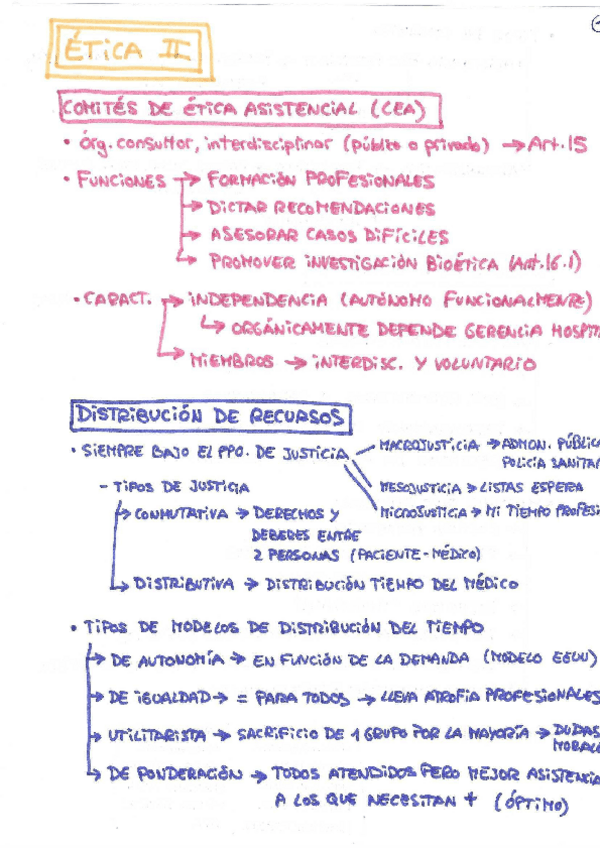 ÉTICA II
COMITÉS DE ÉTICA ASISTENCIAL (CEA)
• Órg. consultor, interdisciplinar (público o privado) → Art. 15
• FUNCIONES → FORMACIÓN PROFESIONALES
→ DICTAR RECOMENDACIONES
→ ASESORAR CASOS DIFÍCILES
→ PROMOVER INVESTIGACIÓN BIOÉTICA (Art. 16.1)
• CARACT. → INDEPENDENCIA (AUTÓNOMO FUNCIONALMENTE)
↳ ORGÁNICAMENTE DEPENDE GERENCIA HOSPITA
→ MIEMBROS → INTERDISC. Y VOLUNTARIO
DISTRIBUCIÓN DE RECURSOS
• SIEMPRE BAJO EL PPO. DE JUSTICIA
MACROJUSTICIA → ADMON. PÚBLIC
POLICÍA SANITAR
MESOJUSTICIA → LISTAS ESPERA
MICROJUSTICIA → MI TIEMPO PROFESI
- TIPOS DE JUSTICIA
→ CONMUTATIVA → DERECHOS Y
DEBERES ENTRE
2 PERSONAS (PACIENTE-MÉDICO)
→ DISTRIBUTIVA → DISTRIBUCIÓN TIEMPO DEL MÉDICO
• TIPOS DE MODELOS DE DISTRIBUCIÓN DEL TIEMPO
→ DE AUTONOMÍA → EN FUNCIÓN DE LA DEMANDA (MODELO EEUU)
→ DE IGUALDAD → = PARA TODOS → LLEVA ATROFIA PROFESIONALES
→ UTILITARISTA → SACRIFICIO DE 1 GRUPO POR LA MAYORÍA → DUDAS
MORALE
→ DE PONDERACIÓN → TODOS ATENDIDOS PERO MEJOR ASISTENCIA
A LOS QUE NECESITAN + (ÓPTIMO)